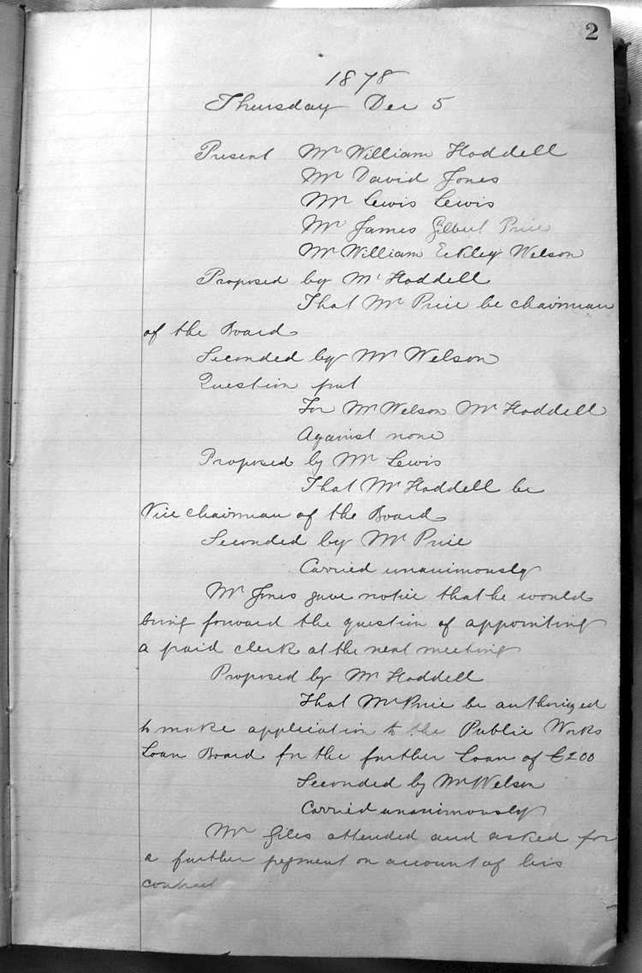 2
1878
Thursday Dec 5
Present Mr William Hoddell
Mr David Jones
Mr Lewis Lewis
Mr James Gilbert Price
Mr William Eckley Welson
Proposed by Mr Hoddell
That Mr Price be chairman
of the Board
Seconded by Mr Welson
Question put
For Mr Welson Mr Hoddell
Against none
Proposed by Mr Lewis
That Mr Hoddell be
Vice chairman of the Board
Seconded by Mr Price
Carried unanimously
Mr Jones gave notice that he would
bring forward the question of appointing
a paid clerk at the next meeting
Proposed by Mr Hoddell
That Mr Price be authorized
to make application to the Public Works
Loan Board for the further Loan of £200
Seconded by Mr Welson
Carried unanimously
Mr Giles attended and asked for
a further payment on account of his
contract